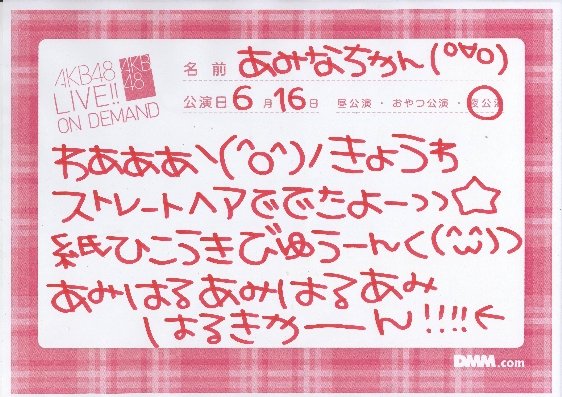 AKB48
LIVE!!
ON DEMAND
AKB
48
名前 あみなちゃん(°∀°)
公演日 6月16日 昼公演・おやつ公演・夜公演
わあああ\(^o^)/きょうわ
ストレートヘアででたよーっっ☆
紙ひこうきびゅうーんく(^ω^)っ
あみはるあみはるあみ
はるきゃーーん!!!!←
DMM.com